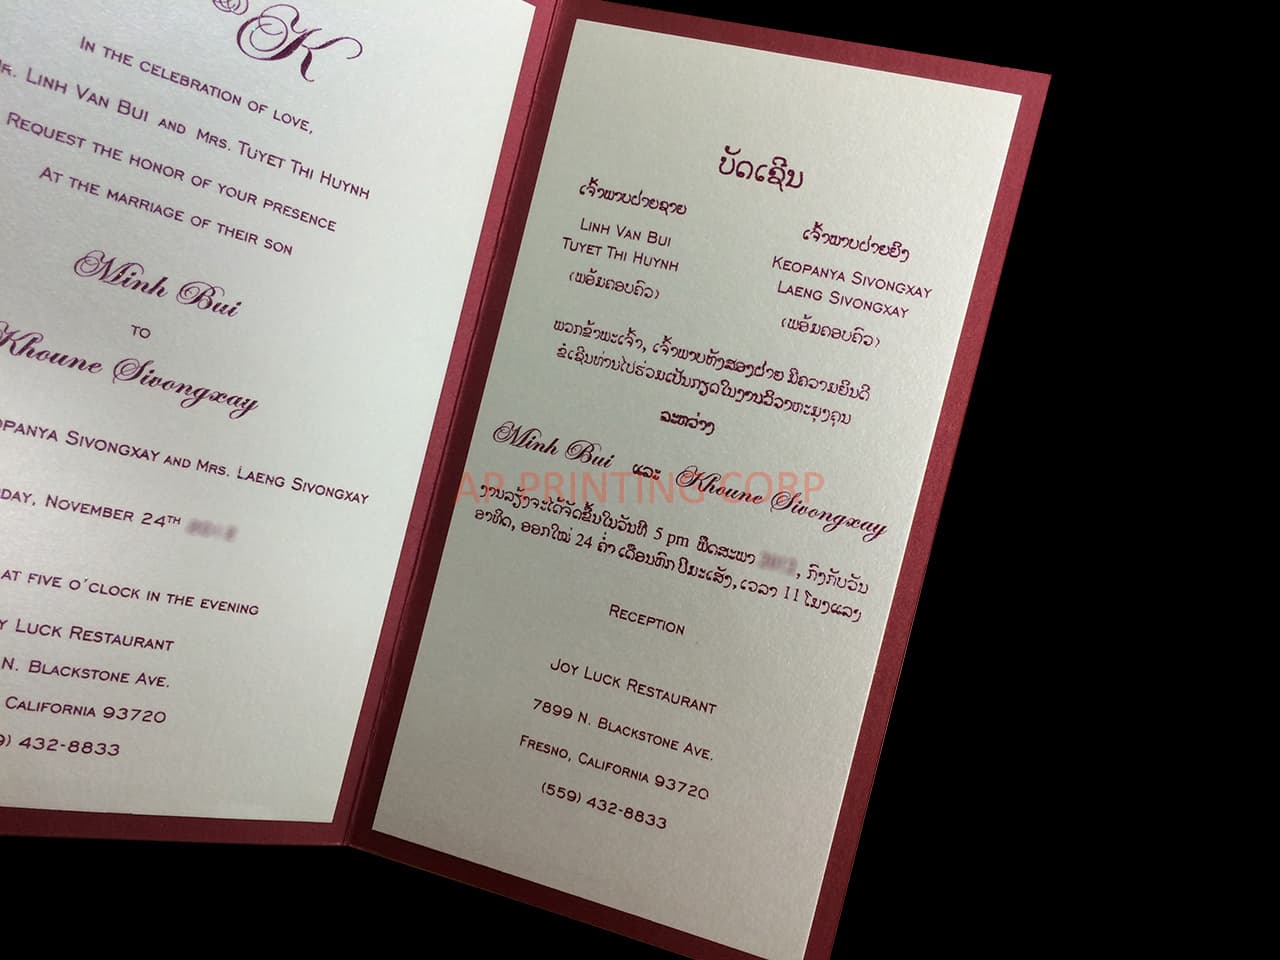 K
In the celebration of love,
r. Linh Van Bui and Mrs. Tuyet Thi Huynh
Request the honor of your presence
At the marriage of their son
Minh Bui
to
Khoune Sivongxay
opanya Sivongxay and Mrs. Laeng Sivongxay
day, November 24th
at five o'clock in the evening
y Luck Restaurant
N. Blackstone Ave.
California 93720
9) 432-8833
ບັດເຊີນ
ເຈົ້າພາບຝ່າຍຊາຍ
Linh Van Bui
Tuyet Thi Huynh
(ພອ້ມຄອບຄົວ)
ເຈົ້າພາບຝ່າຍຍິງ
Keopanya Sivongxay
Laeng Sivongxay
(ພອ້ມຄອບຄົວ)
ພວກຂ້າພະເຈົ້າ, ເຈົ້າພາບທັງສອງຝ່າຍ ມີຄວາມຍິນດີ
ຂໍເຊີນທ່ານໄປຮ່ວມເປັນກຽດໃນງານວິວາຫະມຸງຄຸນ
ລະຫວ່າງ
Minh Bui ແລະ Khoune Sivongxay
ງານລ້ຽງຈະໄດ້ຈັດຂຶ້ນໃນວັນທີ 5 pm ພຶດສະພາ , ກົງກັບວັນ
ອາທິດ, ອອກໃໝ່ 24 ຄ່ຳ ເດືອນຫົກ ປີມະເສັງ, ເວລາ 11 ໂມງແລງ
Reception
Joy Luck Restaurant
7899 N. Blackstone Ave.
Fresno, California 93720
(559) 432-8833
AP PRINTING CORP